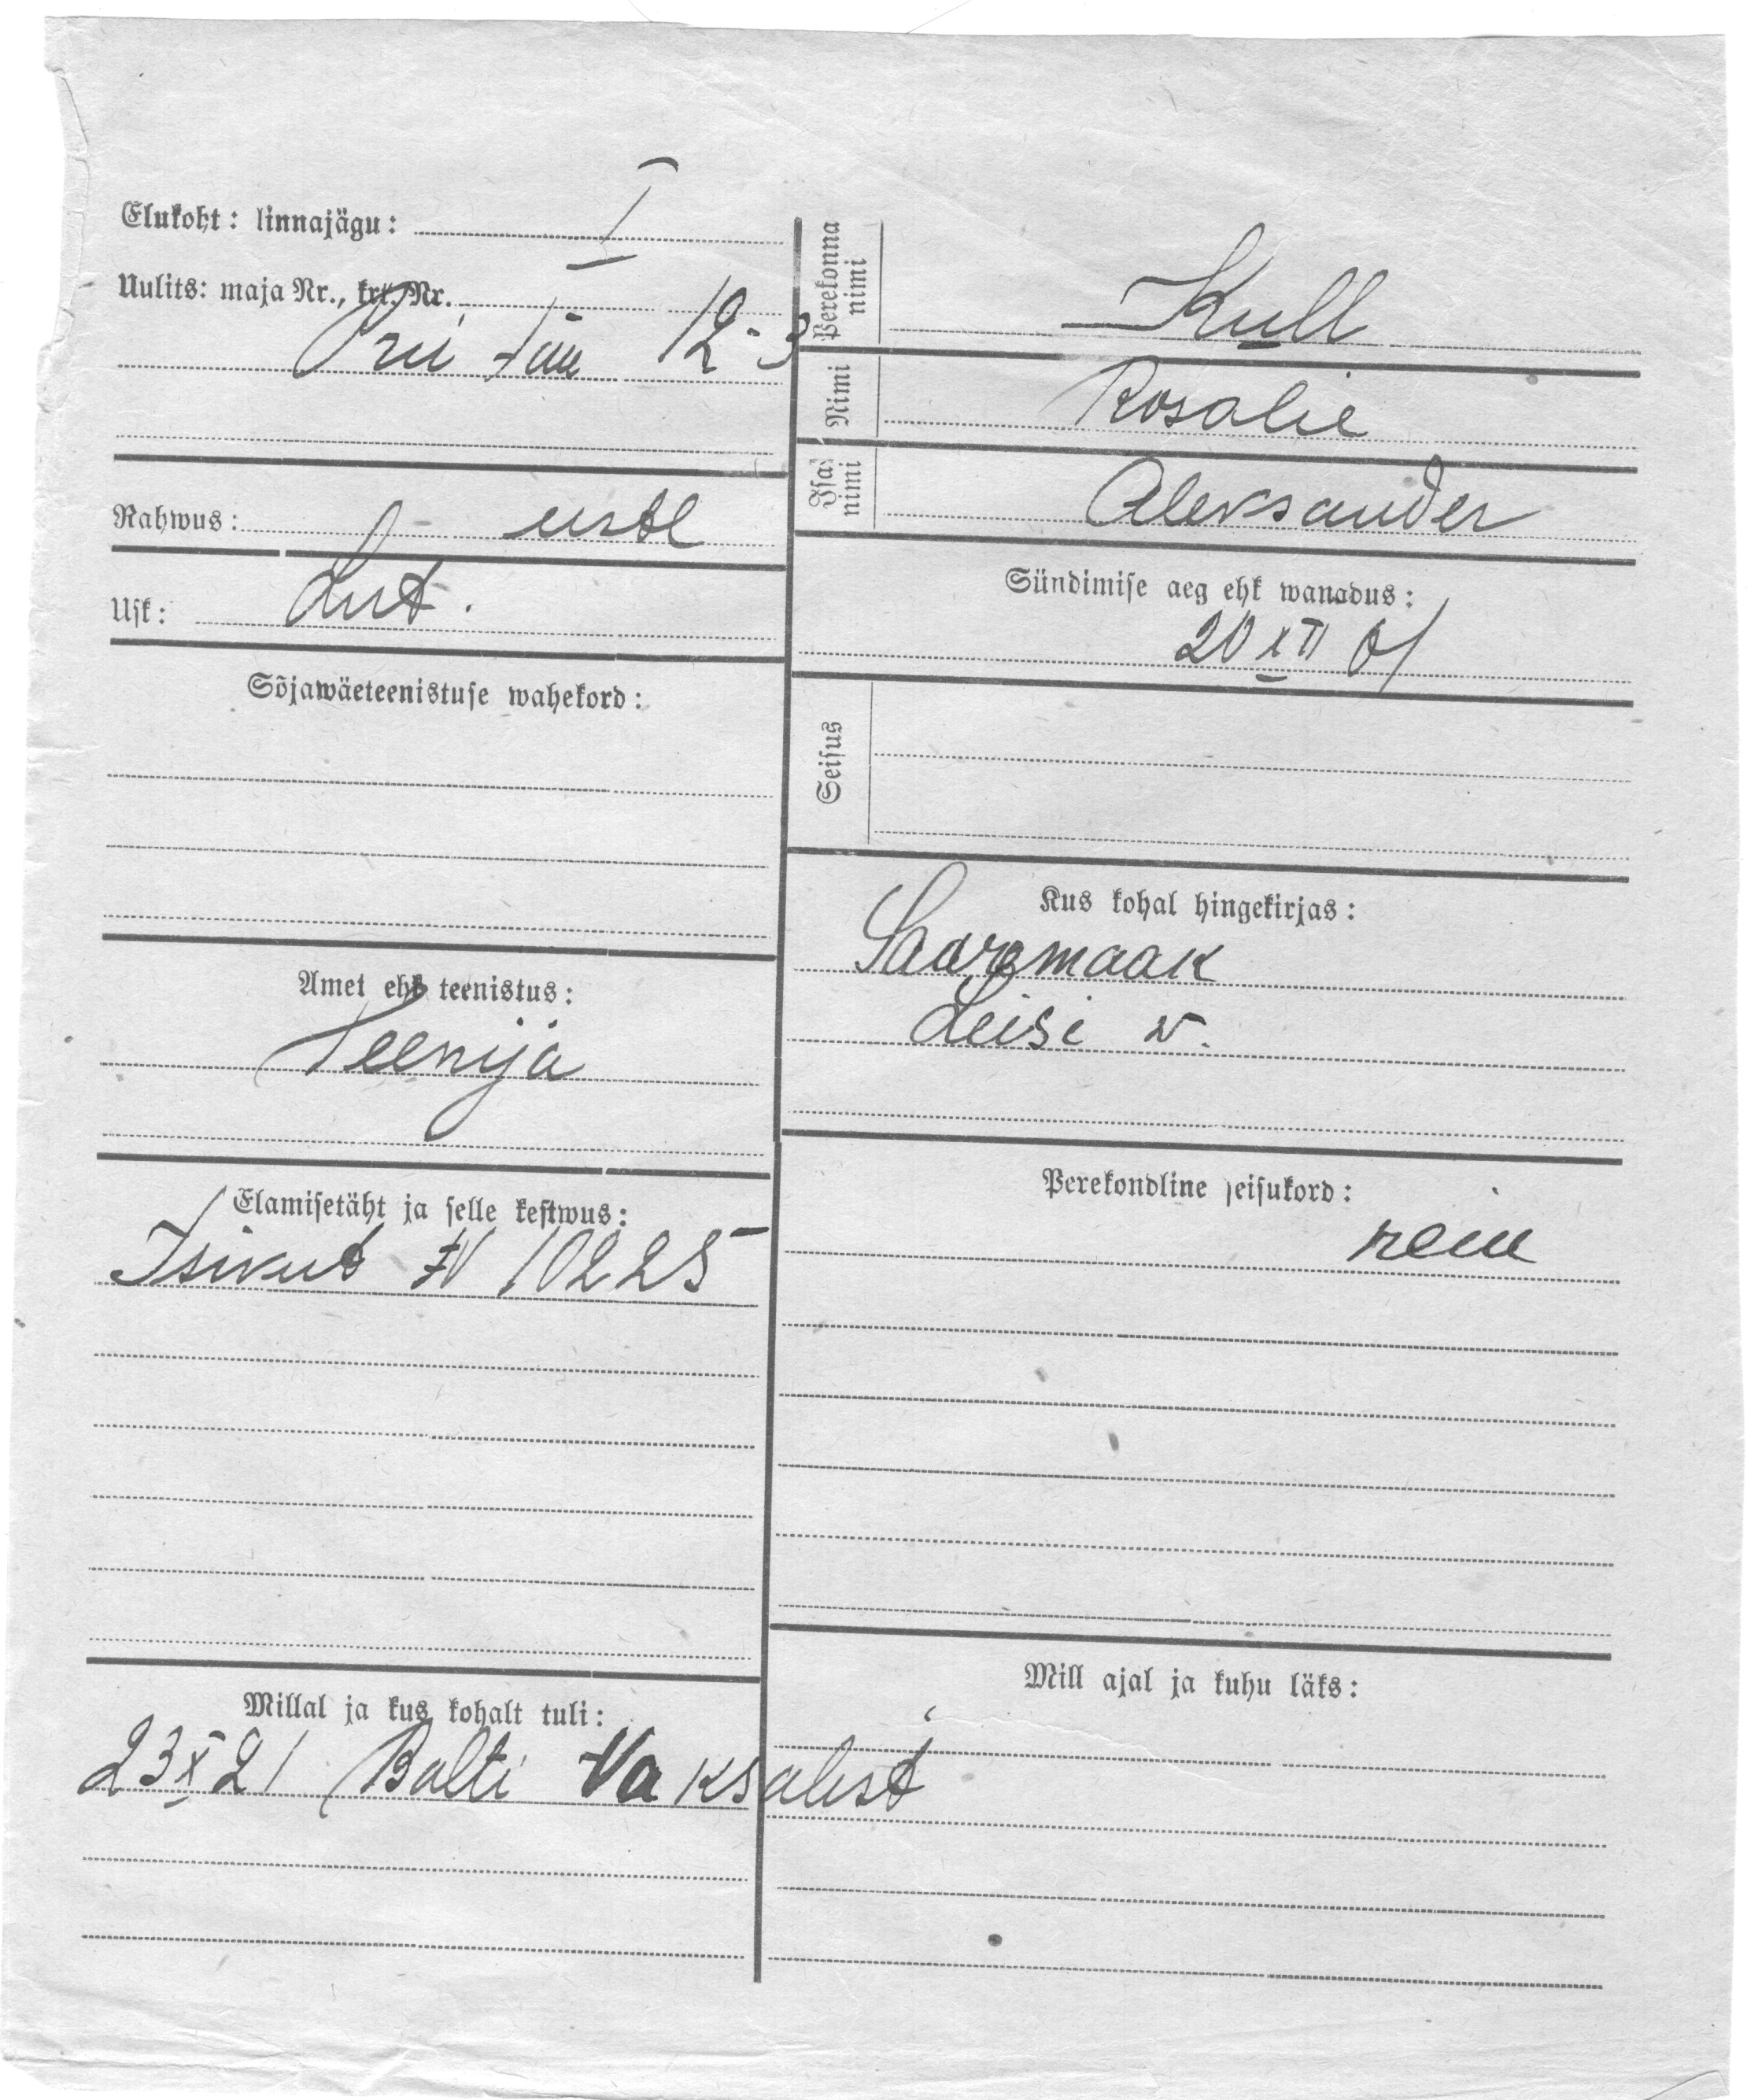 Elukoht: linnajägu: I
Uulits: maja Nr., krt. Nr.
12-3
Rahwus: eestl
Usk: Lut.
Sõjawäeteenistuse wahekord:
Amet ehk teenistus:
Teenija
Elamisetäht ja selle kestwus:
Isikut № 10225
Millal ja kus kohalt tuli:
23 X 21 Balti Vaksalist
Perekonna nimi
Kull
Nimi
Rosalie
Isa nimi
Aleksander
Sündimise aeg ehk wanadus:
20 XII 01
Seisus
Kus kohal hingekirjas:
Saaremaak
Leisi v.
Perekondline seisukord:
neiu
Mill ajal ja kuhu läks: